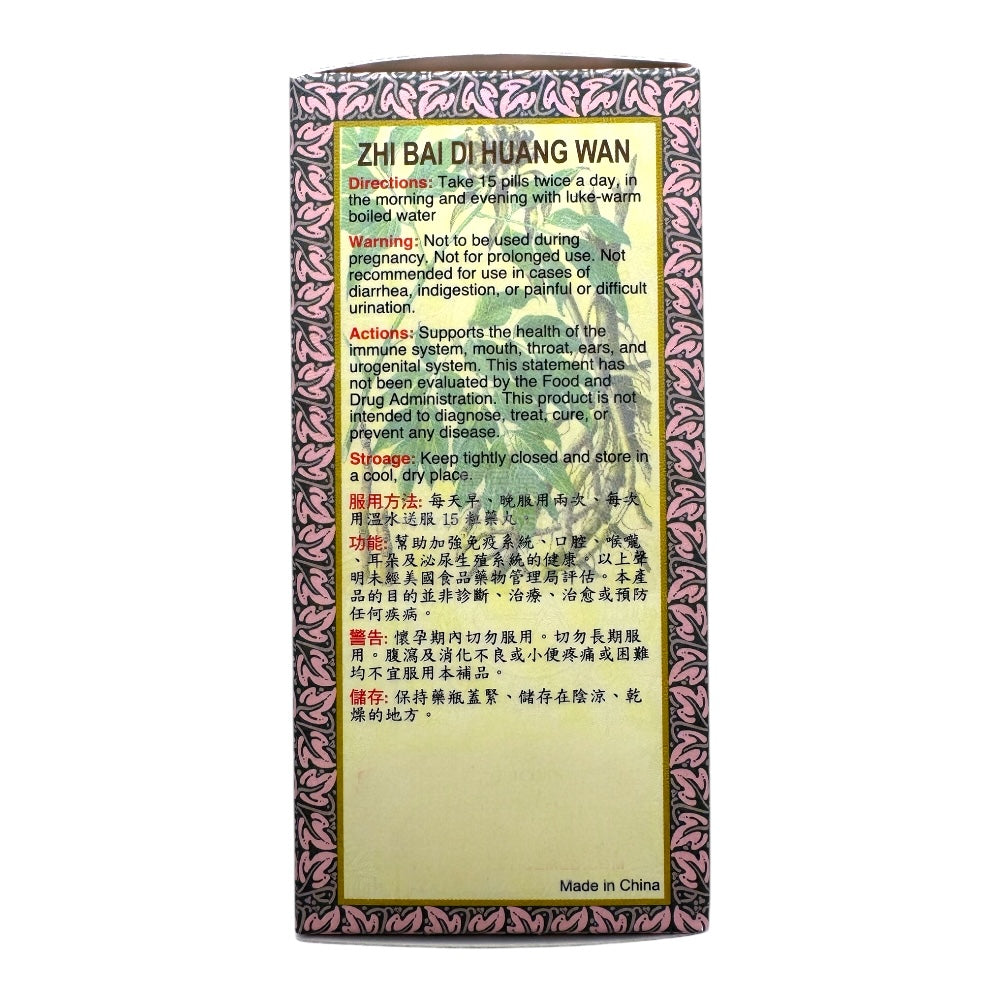 ZHI BAI DI HUANG WAN
Directions: Take 15 pills twice a day, in
the morning and evening with luke-warm
boiled water
Warning: Not to be used during
pregnancy. Not for prolonged use. Not
recommended for use in cases of
diarrhea, indigestion, or painful or difficult
urination.
Actions: Supports the health of the
immune system, mouth, throat, ears, and
urogenital system. This statement has
not been evaluated by the Food and
Drug Administration. This product is not
intended to diagnose, treat, cure, or
prevent any disease.
Stroage: Keep tightly closed and store in
a cool, dry place.
服用方法: 每天早、晚服用兩次、每次
用溫水送服 15 粒藥丸。
功能: 幫助加強免疫系統、口腔、喉嚨
、耳朵及泌尿生殖系統的健康。以上聲
明未經美國食品藥物管理局評估。本產
品的目的並非診斷、治療、治愈或預防
任何疾病。
警告: 懷孕期內切勿服用。切勿長期服
用。腹瀉及消化不良或小便疼痛或困難
均不宜服用本補品。
儲存: 保持藥瓶蓋緊、儲存在陰涼、乾
燥的地方。
Made in China